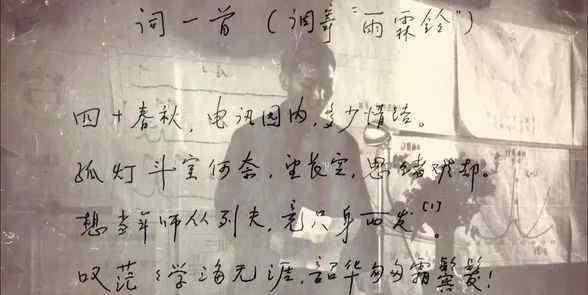 词一首（调寄“雨霖铃”）
四十春秋，电讯园内，多少情结。
孤灯斗室何奈，望长空，思绪却。
想当年师从列夫，竟只身西发[1]。
叹茫々学海无涯，韶华匆匆霜鬓发！